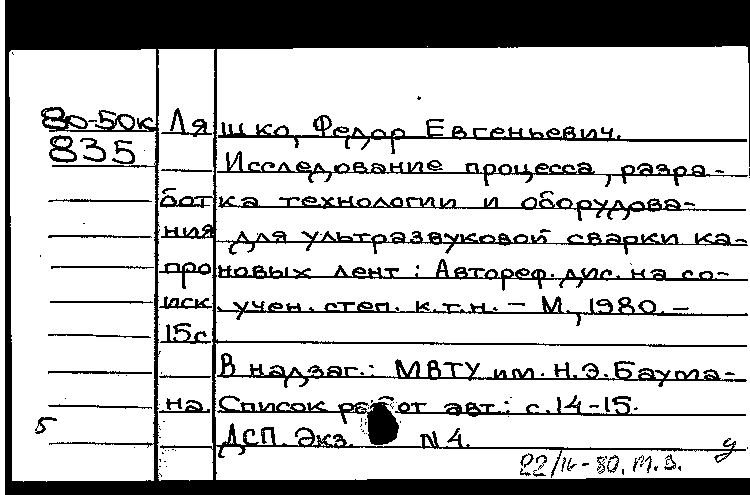 80-50к Ляшко, Федор Евгеньевич.
835 Исследование процесса, разра-
ботка технологии и оборудова-
ния для ультразвуковой сварки ка-
проновых лент : Автореф. дис. на со-
иск. учен. степ. к.т.н. – М., 1980. –
15с.
В надзаг.: МВТУ им. Н.Э. Баума-
на. Список работ авт.: с. 14-15.
5 ДСП. Экз. N 4.
22/IV-80. М.В.